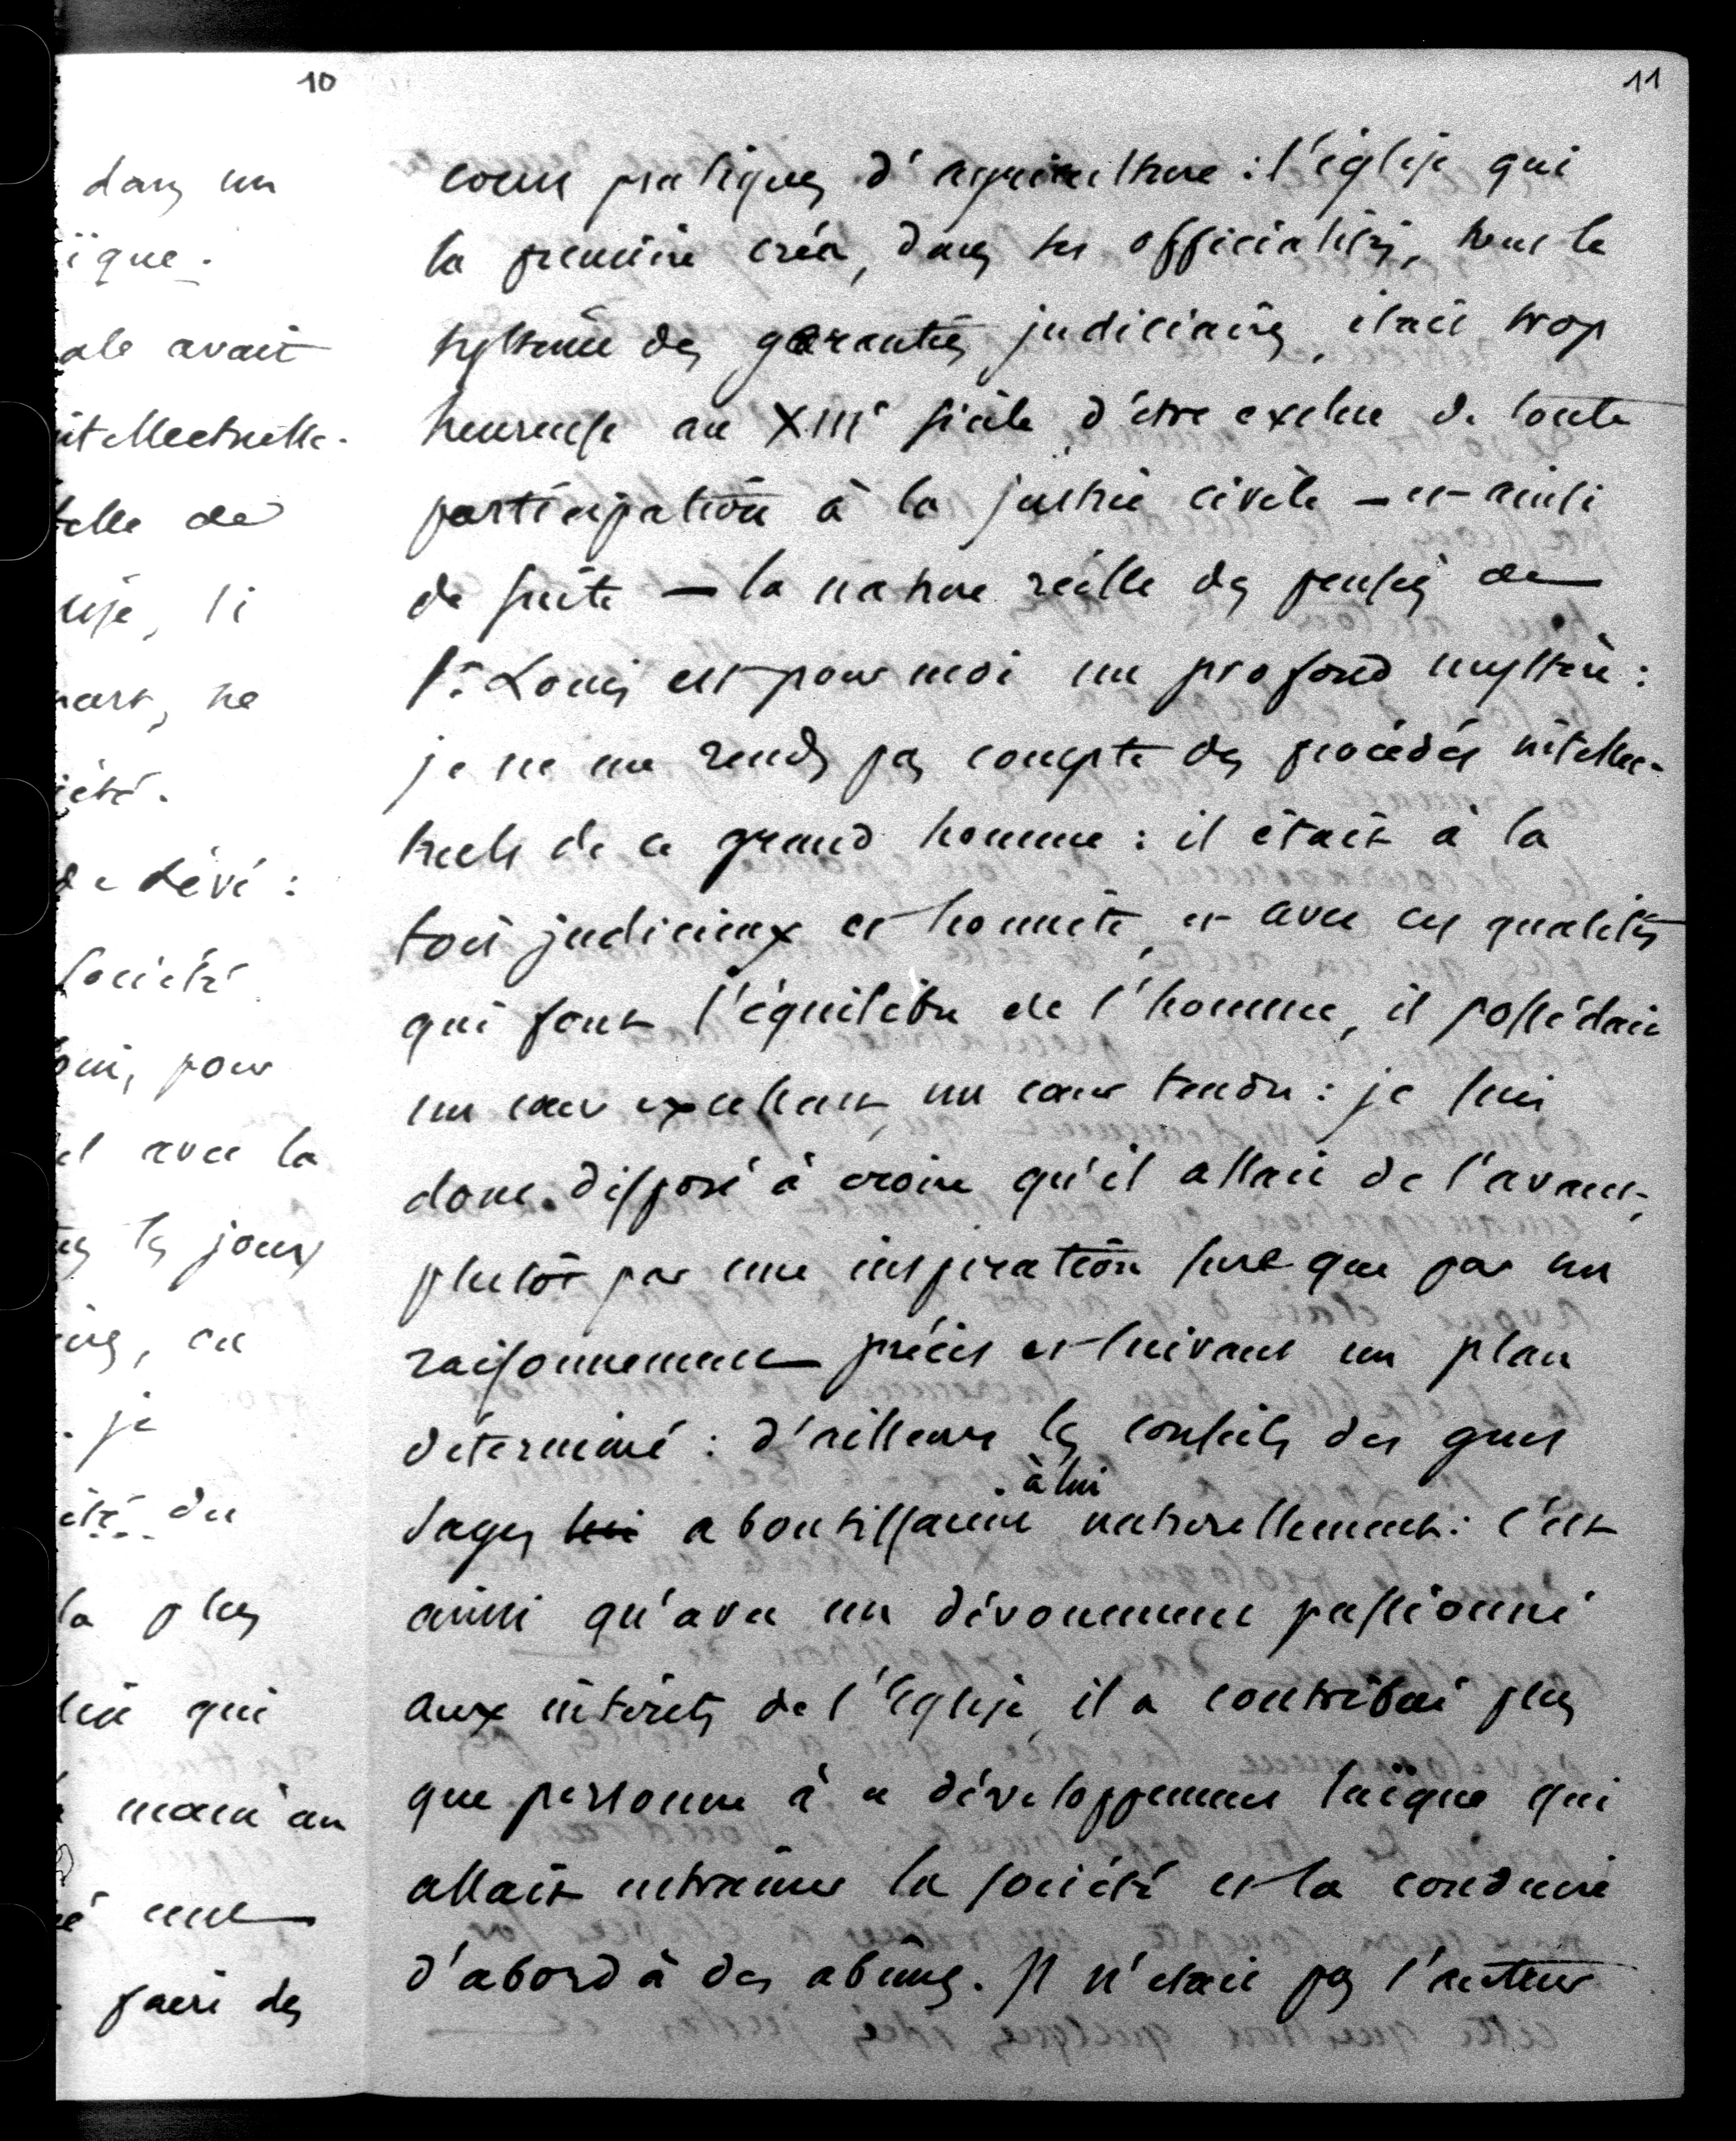 10
dans un
ique.
ale avait
ntellectuelle.
telle de
lise, si
part, ne
iété.
de Lévi :
société
oin, pour
el avec la
les jours
, en
. je
du
la plus
qui
main au
é une
faire des
11
cours pratiques d'agriculture : l'église qui
la première créa, dans ses officialités, tout le
système des garanties judiciaires, était trop
heureuse au XIIIe siècle d'être exclue de toute
participation à la justice civile – et ainsi
de suite – la nature réelle des pensées de
St Louis est pour moi un profond mystère :
je ne me rends pas compte des procédés intellec-
tuels de ce grand homme : il était à la
fois judicieux et honnête, et avec ces qualités
qui font l'équilibre de l'homme, il possédait
un cœur excellent, un cœur tendre : je suis
donc disposé à croire qu'il allait de l'avant,
plutôt par une inspiration sure que par un
raisonnement précis et suivant un plan
déterminé : d'ailleurs les conseils des gens
sages lui aboutissaient à lui naturellement : c'est
ainsi qu'avec un dévouement passionné
aux intérêts de l'Eglise, il a contribué plus
que personne à ce développement laïque qui
allait entraîner la société et la conduire
d'abord à des abîmes. Il n'était pas l'auteur